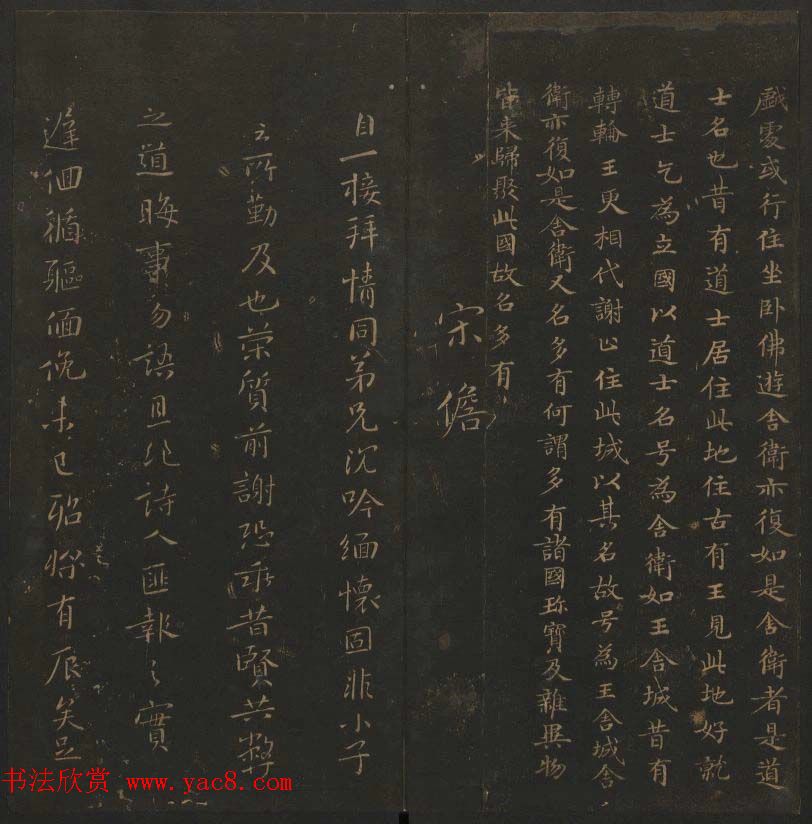 戲處或行住坐臥佛遊舍衛亦復如是舍衛者是道
士名也昔有道士居住此地住古有王見此地好就
道士乞為立國以道士名号為舍衛如王舍城昔有
轉輪王更相代謝止住此城以其名故号為王舍城舍
衛亦復如是舍衛又名多有何謂多有諸國珎寶及雜異物
皆来歸聚此國故名多有
宋儋
自一接拜情同弟兄沉吟緬懷固非小子
之所勤及也榮質前謝恐乖昔賢共弊
之道晦事勿語且非詩人匪報之實
遅佪循軀僶俛未已貽將有辰矣足
书法欣赏 www.yac8.com